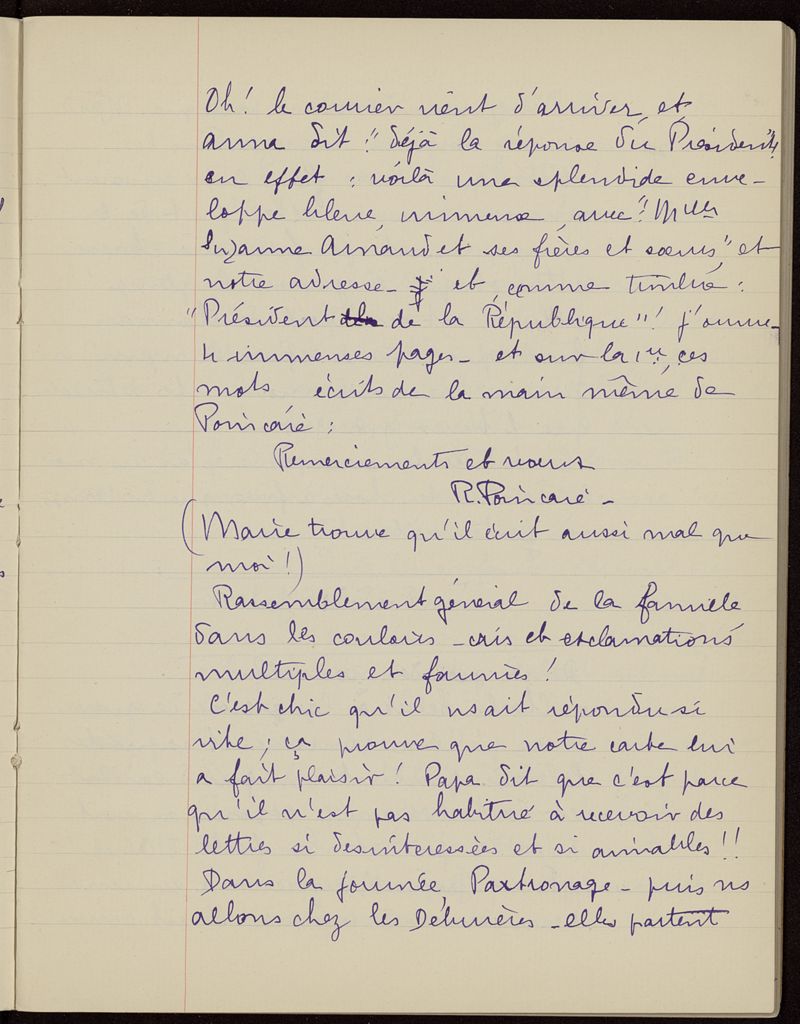 Oh! le courrier vient d'arriver, et
anna dit : "déjà la réponse du Président"!
en effet : voilà une splendide enve-
loppe bleue, immense, avec "Mlles
Suzanne Arnaud et ses frères et sœurs" et
notre adresse - et, comme timbre :
"Président de la République"! j'ouvre -
4 immenses pages - et sur la 1re, ces
mots écrits de la main même de
Poincaré :
Remerciements et vœux
R. Poincaré -
(Marie trouve qu'il écrit aussi mal que
moi!)
Rassemblement général de la famille
dans les couloirs - cris et exclamations
multiples et fournies!
C'est chic qu'il ns ait répondu si
vite ; ça prouve que notre carte lui
a fait plaisir! Papa dit que c'est parce
qu'il n'est pas habitué à recevoir des
lettres si désintéressées et si aimables!!
Dans la journée, Patronage - puis ns
allons chez les - elles partent